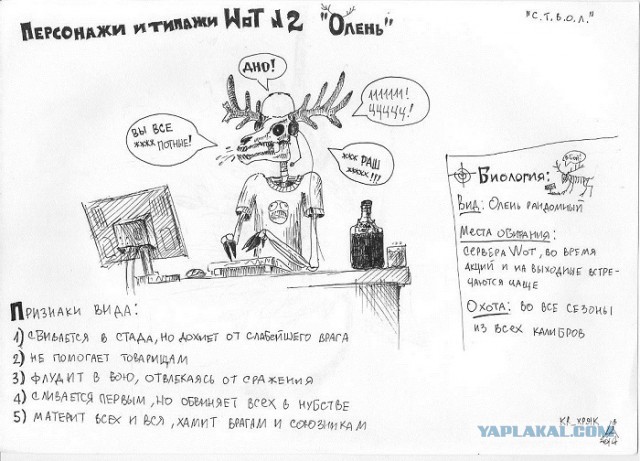 Персонажи и типажи WoT №2 "Олень"
"С.Т.В.О.Л."
Дно!
11111!
Цццц!
Вы все
жжжж потные!
жжк РАШ
жжжж!!!
Биология:
Вид: Олень рандомный
Места обитания:
сервера WoT, во время
акций и на выходные встре-
чаются чаще
Охота: во все сезоны
из всех калибров
Признаки вида:
1) сбивается в стада, но дохнет от слабейшего врага
2) не помогает товарищам
3) флудит в бою, отвлекаясь от сражения
4) сливается первым, но обвиняет всех в нубстве
5) материт всех и вся, хамит врагам и союзникам
KR_ХРЯК
YAPLAKAL.COM